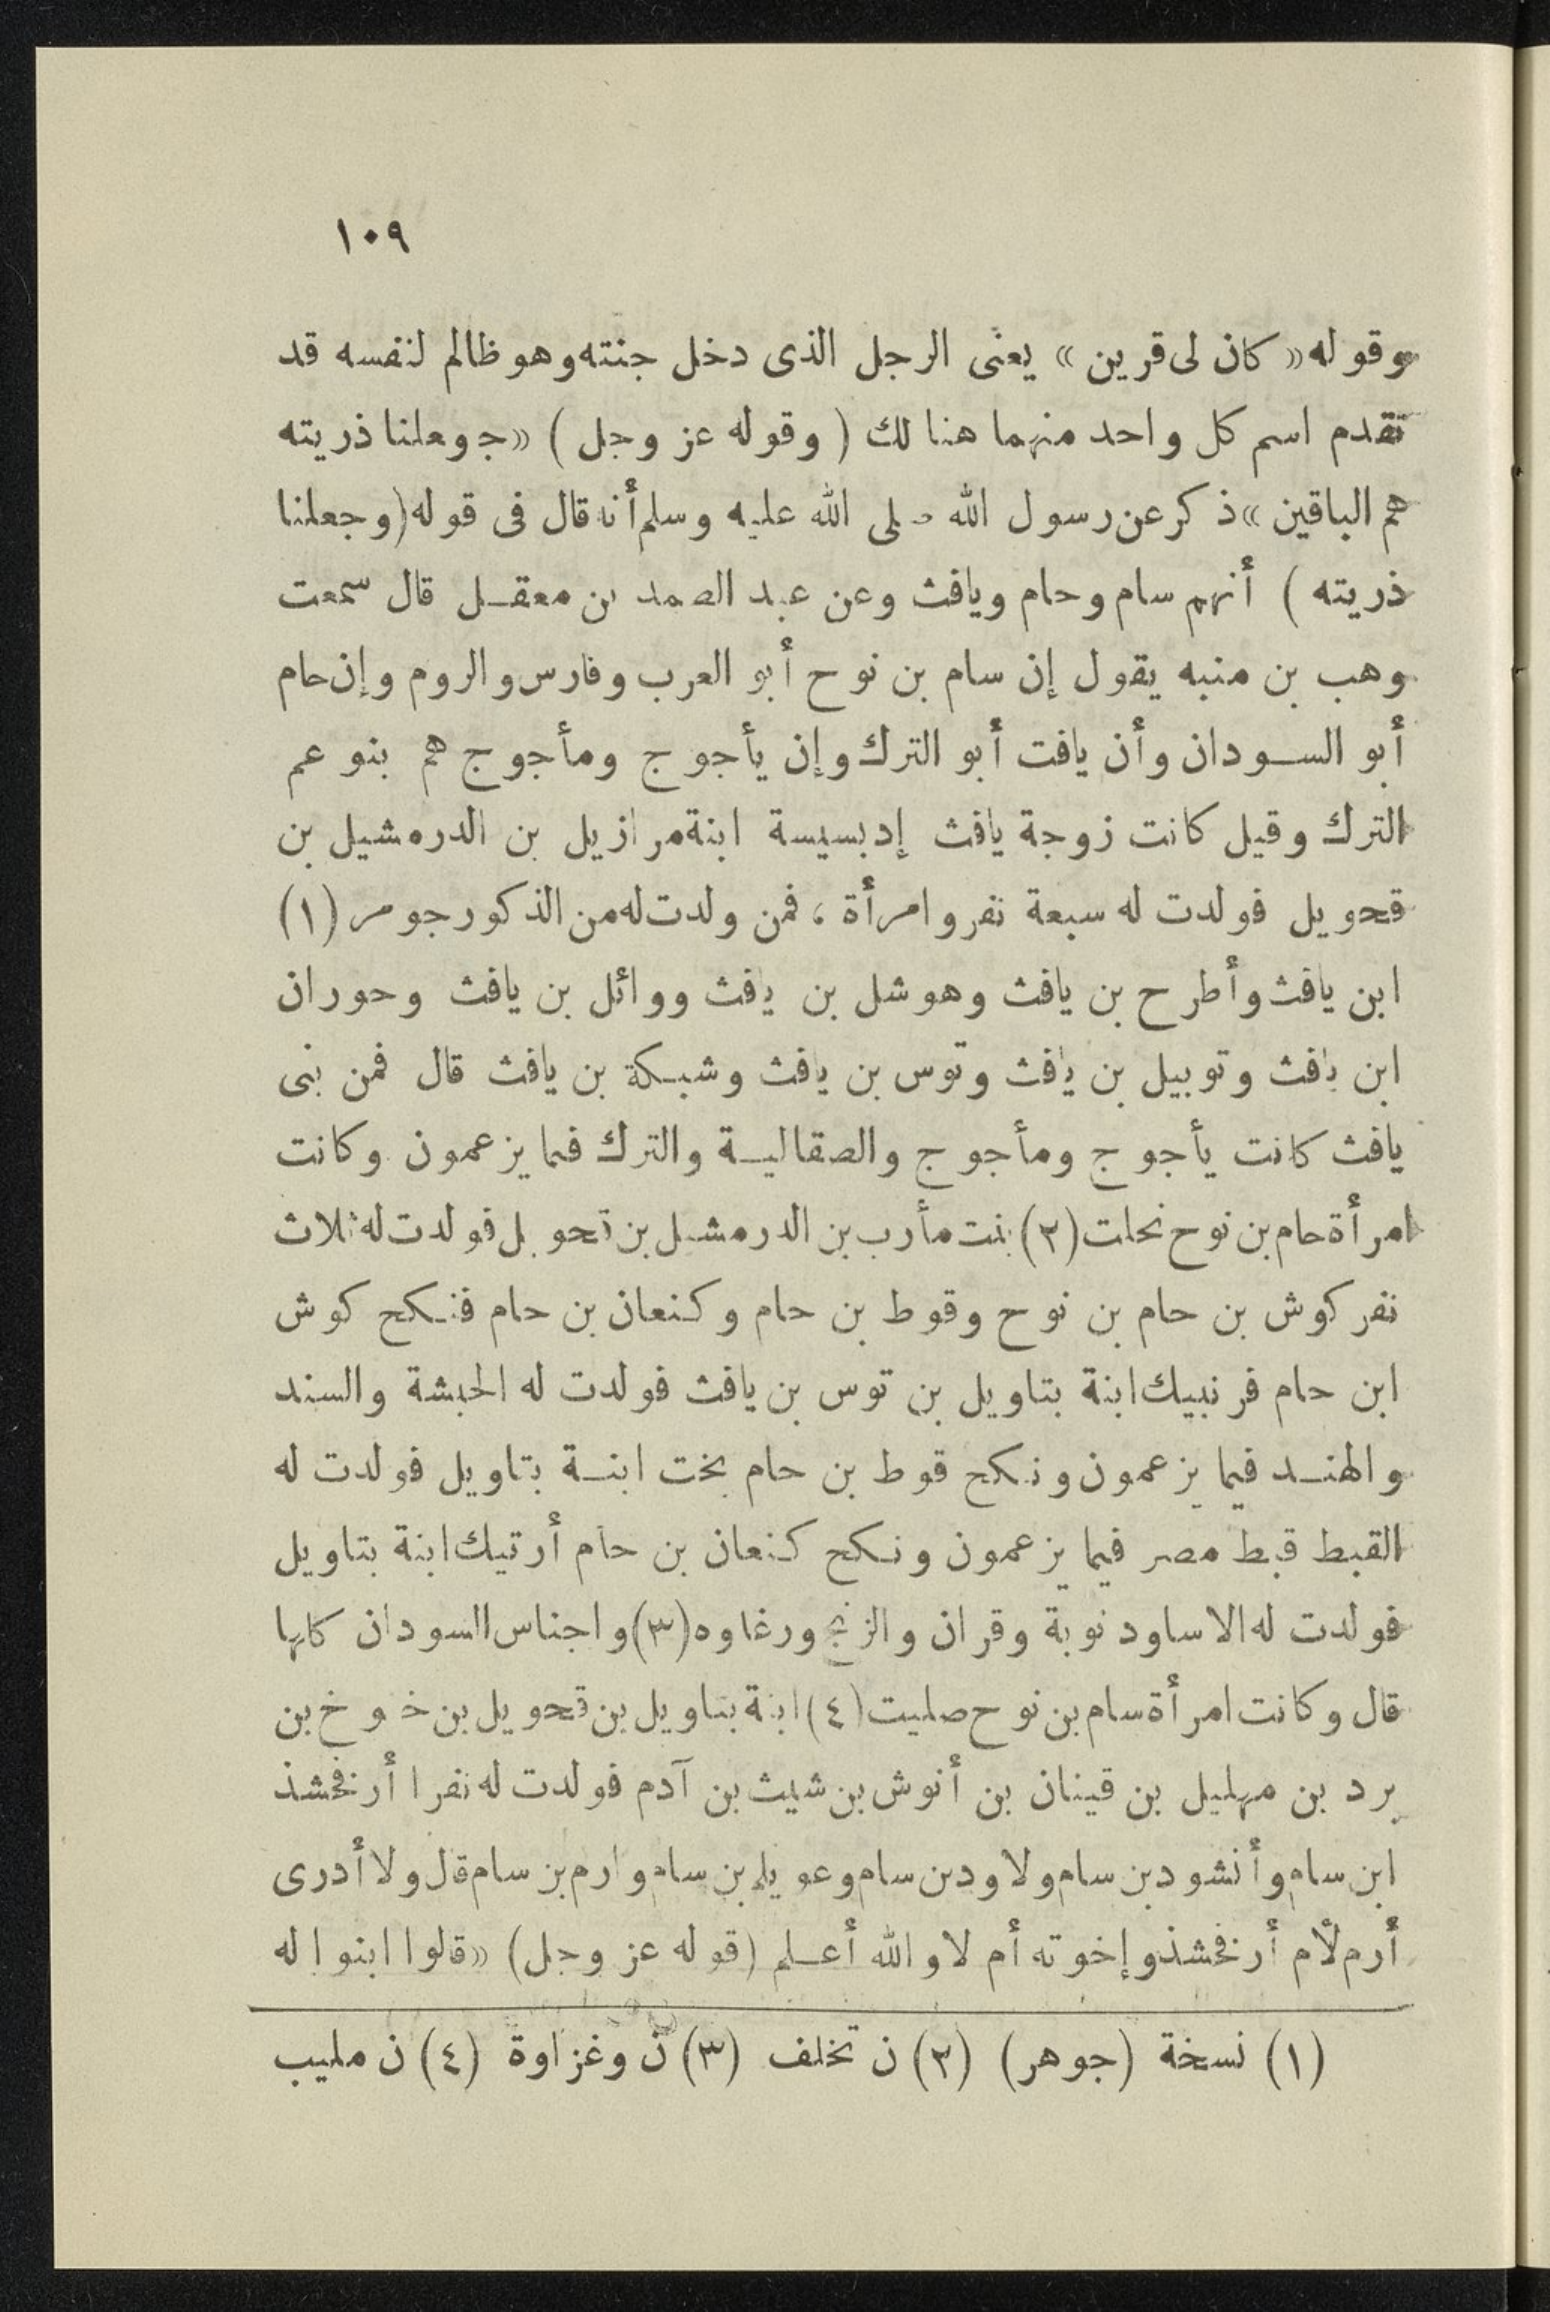 ١٠٩
وقوله «كان لى قرين» يعنى الرجل الذى دخل جنته وهو ظالم لنفسه قد
تقدم اسم كل واحد منهما هنا لك ( وقوله عز وجل ) «ج وعلنا ذريته
هم الباقين» ذكر عن رسول الله صلى الله عليه وسلم أنه قال فى قوله (وجعلنا
ذريته ) أنهم سام وحام ويافث وعن عبد الصمد بن معقل قال سمعت
وهب بن منبه يقول إن سام بن نوح أبو العرب وفارس والروم وإن حام
أبو السودان وأن يافت أبو الترك وإن يأجوج ومأجوج هم بنو عم
الترك وقيل كانت زوجة يافث إدبسيسة ابنة مرازيل بن الدرمشيل بن
قحويل فولدت له سبعة نفر وامرأة ، فمن ولدت له من الذكور جومر (١)
ابن يافث وأطرح بن يافث وهوشل بن يافث ووائل بن يافث وحوران
ابن يافث وتوبيل بن يافث وتوس بن يافث وشبكة بن يافث قال فمن بنى
يافث كانت يأجوج ومأجوج والصقالية والترك فيما يزعمون وكانت
امرأة حام بن نوح نحلت (٢) بنت مأرب بن الدرمشل بن قحويل فولدت له ثلاث
نفر كوش بن حام بن نوح وقوط بن حام وكنعان بن حام فنكح كوش
ابن حام فرنبيك ابنة بتاويل بن توس بن يافث فولدت له الحبشة والسند
والهند فيما يزعمون ونكح قوط بن حام بخت ابنة بتاويل فولدت له
القبط قبط مصر فيما يزعمون ونكح كنعان بن حام أرتيك ابنة بتاويل
فولدت له الاساود نوبة وقران والزنج ورغاوه (٣) واجناس السودان كلها
قال وكانت امرأة سام بن نوح صليت (٤) ابنة بتاويل بن قحويل بن خوخ بن
برد بن مهليل بن قينان بن أنوش بن شيث بن آدم فولدت له نفرا أرفخشذ
ابن سام وأنشود بن سام ولاود بن سام وعويلم بن سام وارم بن سام قال ولا أدرى
أرم لأم أرفخشذ وإخوته أم لا والله أعلم (قوله عز وجل) «قالوا ابنوا له
(١) نسخة (جوهر) (٢) ن تخلف (٣) ن وغزاوة (٤) ن مليب